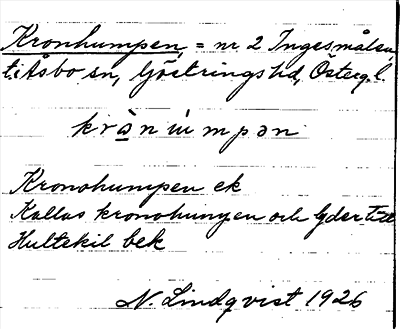 Kronhumpen, = nr 2 Ingesmålsu,
t. Åsbo sn, Göstrings hd, Östergl.
kràn ù mpən
Kronohumpen ek
Kallas kronohumpen och lyder till
Hultekil bek
N. Lindqvist 1926